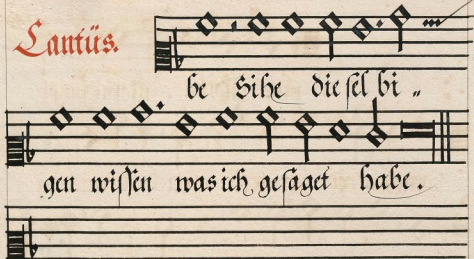 Cantüs.
be Sihe die sel bi „
gen wissen was ich gesaget habe.